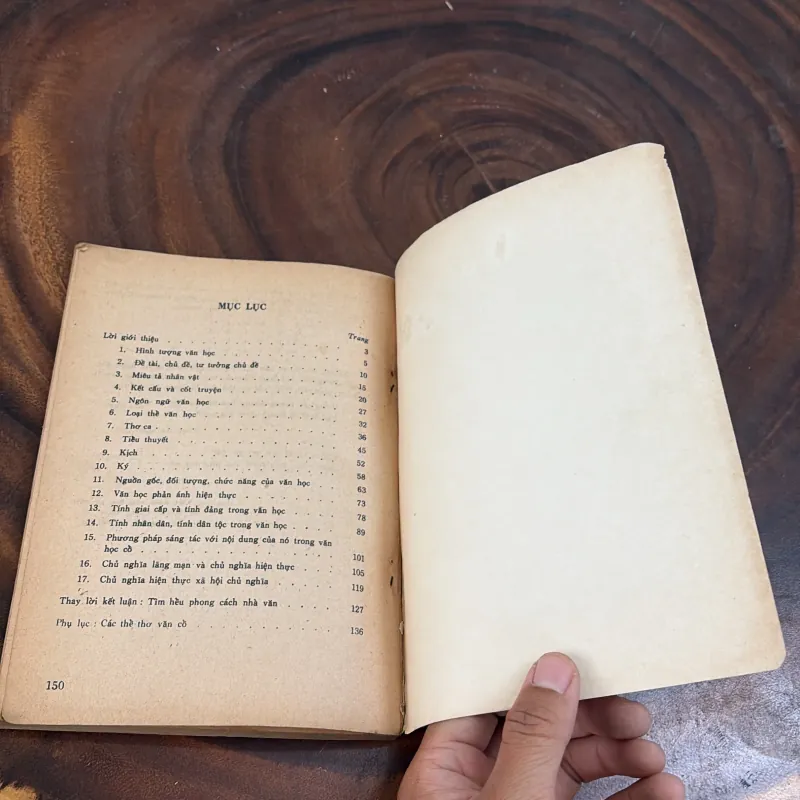 MỤC LỤC
Trang
Lời giới thiệu . . . . . . . . . . . . 3
1. Hình tượng văn học . . . . . . . . . . . 5
2. Đề tài, chủ đề, tư tưởng chủ đề . . . . . . . 10
3. Miêu tả nhân vật . . . . . . . . . . . 15
4. Kết cấu và cốt truyện . . . . . . . . . . 20
5. Ngôn ngữ văn học . . . . . . . . . . . 27
6. Loại thể văn học . . . . . . . . . . . 32
7. Thơ ca . . . . . . . . . . . . . 36
8. Tiểu thuyết . . . . . . . . . . . . 45
9. Kịch . . . . . . . . . . . . . 52
10. Ký . . . . . . . . . . . . . 58
11. Nguồn gốc, đối tượng, chức năng của văn học . . . 63
12. Văn học phản ánh hiện thực . . . . . . . . 73
13. Tính giai cấp và tính đảng trong văn học . . . . 78
14. Tính nhân dân, tính dân tộc trong văn học . . . . 89
15. Phương pháp sáng tác với nội dung của nó trong văn
học cổ . . . . . . . . . . . . . 101
16. Chủ nghĩa lãng mạn và chủ nghĩa hiện thực . . . . 105
17. Chủ nghĩa hiện thực xã hội chủ nghĩa . . . . . . 119
Thay lời kết luận : Tìm hểu phong cách nhà văn . . . . 127
Phụ lục : Các thể thơ văn cổ . . . . . . . . . 136
150